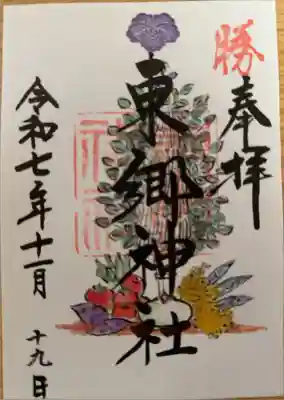 勝
奉拝
東郷神社
令和七年十一月
十九日